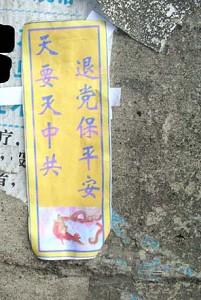 天要灭中共
退党保平安
疗，